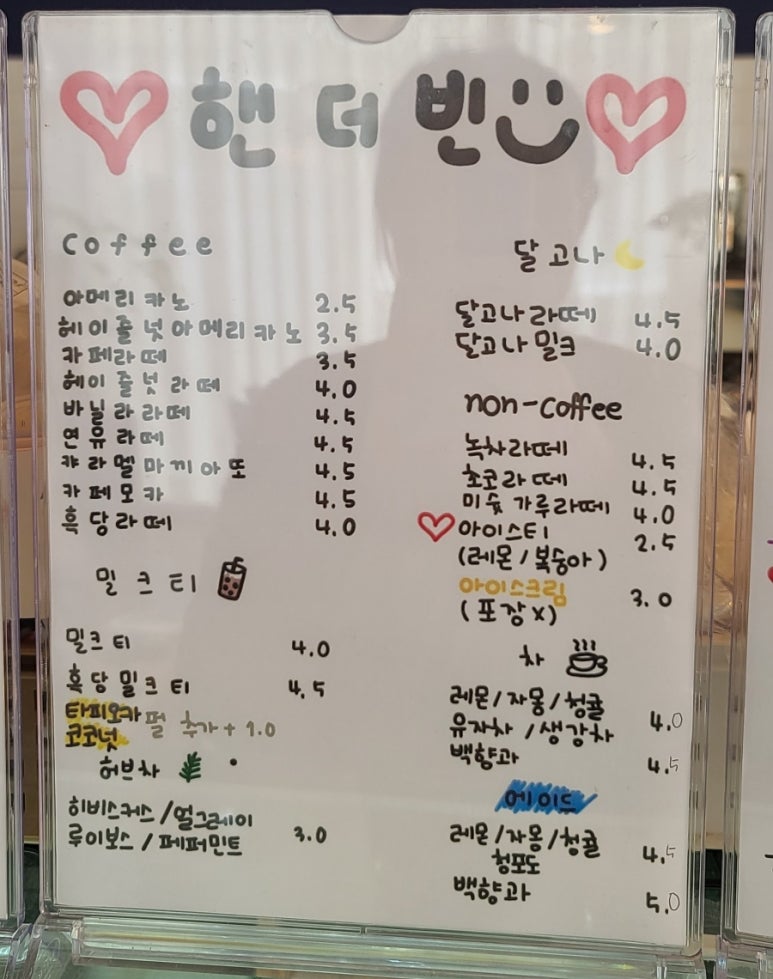 핸 더 빈
Coffee
아메리카노 2.5
헤이즐넛아메리카노 3.5
카페라떼 3.5
헤이즐넛 라떼 4.0
바닐라라떼 4.5
연유라떼 4.5
캬라멜마끼아또 4.5
카페모카 4.5
흑당라떼 4.0
밀크티
밀크티 4.0
흑당밀크티 4.5
타피오카 펄 추가 + 1.0
코코넛
허브차
히비스커스/얼그레이
루이보스/페퍼민트 3.0
달고나
달고나라떼 4.5
달고나밀크 4.0
non-coffee
녹차라떼 4.5
초코라떼 4.5
미숫가루라떼 4.0
아이스티 2.5
(레몬/복숭아)
아이스크림 3.0
(포장X)
차
레몬/자몽/청귤
유자차/생강차 4.0
백향과 4.5
에이드
레몬/자몽/청귤 4.5
청포도
백향과 5.0